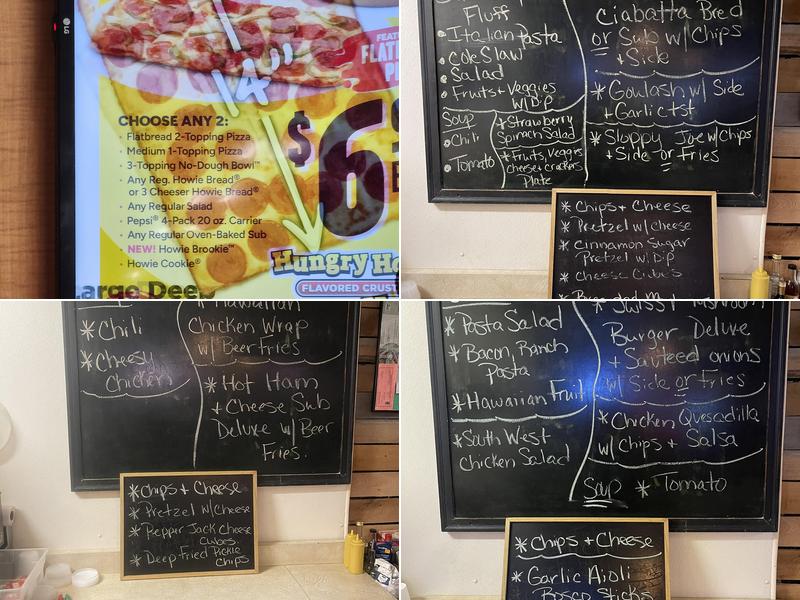 LG
14"
CHOOSE ANY 2:
• Flatbread 2-Topping Pizza
• Medium 1-Topping Pizza
• 3-Topping No-Dough Bowl™
• Any Reg. Howie Bread®
or 3 Cheeser Howie Bread®
• Any Regular Salad
• Pepsi® 4-Pack 20 oz. Carrier
• Any Regular Oven-Baked Sub
• NEW! Howie Brookie™
• Howie Cookie®
$6
Hungry Ho
FLAVORED CRUST
Fluff
• Italian Pasta
• Cole Slaw
• Salad
• Fruits + Veggies
w/ Dip
Soup
• Chili
• Tomato
* Strawberry
Spinach Salad
* Fruits, Veggies
cheese + crackers
Plate
Ciabatta Bred
or Sub w/ Chips
+ Side
* Goulash w/ Side
+ Garlic tst
* Sloppy Joe w/ Chips
+ Side or Fries
* Chips + Cheese
* Pretzel w/ Cheese
* Cinnamon Sugar
Pretzel w/ Dip
* Cheese Cubes
* Chili
* Cheesy
Chicken
* Hawaiian
Chicken Wrap
w/ Beer Fries
* Hot Ham
+ Cheese Sub
Deluxe w/ Beer
Fries.
* Chips + Cheese
* Pretzel w/ Cheese
* Pepper Jack Cheese
Cubes
* Deep Fried Pickle
Chips
* Pasta Salad
* Bacon, Ranch
Pasta
* Hawaiian Fruit
* South West
Chicken Salad
* Swiss + Mushroom
Burger Deluxe
+ Sauteed onions
w/ Side or Fries
* Chicken Quesadilla
w/ Chips + Salsa
Soup * Tomato
* Chips + Cheese
* Garlic Aioli
Bosco Sticks